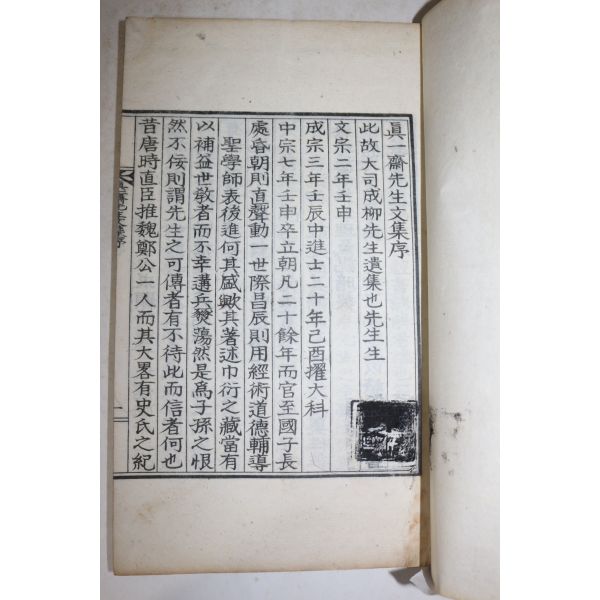 眞一齋先生文集序
此故大司成柳先生遺集也先生生
文宗二年壬申
成宗三年壬辰中進士二十年己酉擢大科
中宗七年壬申卒立朝凡二十餘年而官至國子長
處昏朝則直聲動一世際昌辰則用經術道德輔導
聖學師表後進何其盛歟其著述巾衍之藏當有
以補益世敎者而不幸遘兵燹蕩然是爲子孫之恨
然不佞則謂先生之可傳者有不待此而信者何也
昔唐時直臣推魏鄭公一人而其大畧有史氏之紀